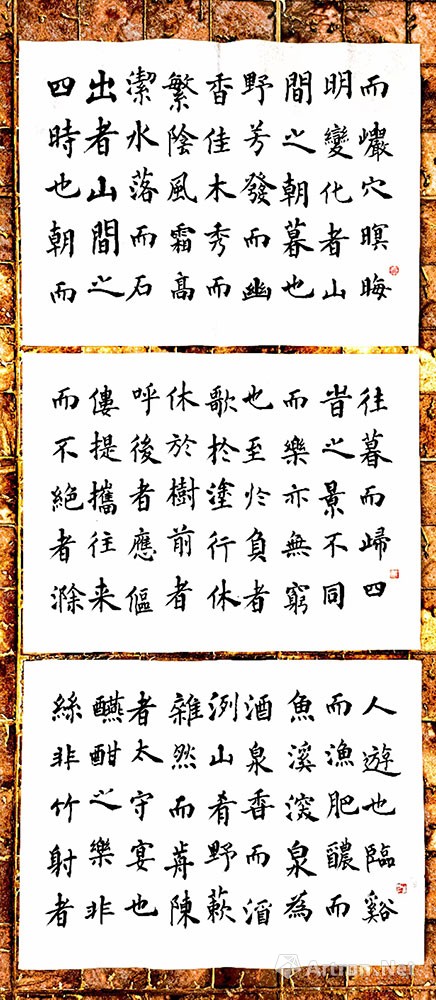 而巖穴暝晦
明變化者山
間之朝暮也
野芳發而幽
香佳木秀而
繁陰風霜高
潔水落而石
出者山間之
四時也朝而
往暮而歸四
旹之景不同
而樂亦無窮
也至扵負者
歌扵塗行休
休於樹前者
呼後者應傴
僂提攜往来
而不絕者滁
人遊也臨谿
而漁肥醲而
魚溪深泉為
酒泉香而酒
洌山肴野蔌
雜然而歬陳
者太守宴也
醼酣之樂非
絲非竹射者
Artron.Net